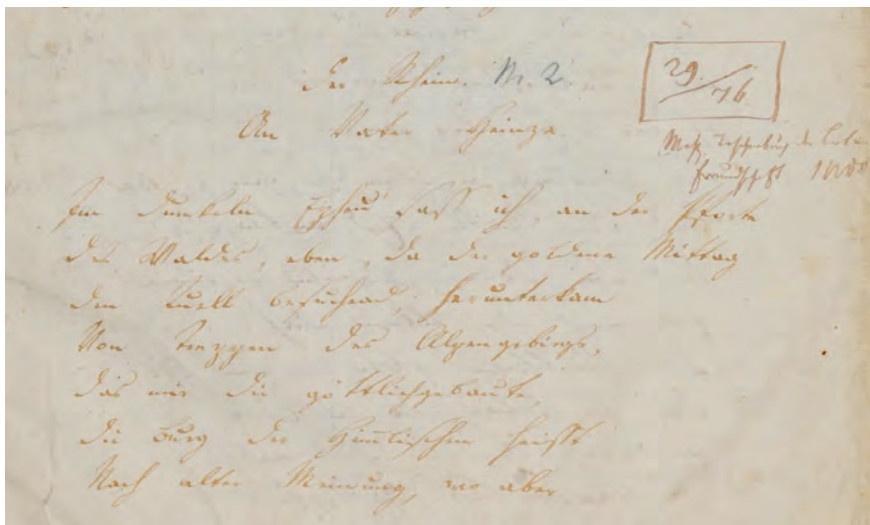 Der Rhein. Nr. 2.
29./76
An Vater Heinze
Im dunkeln Epheu saß ich, an der Pforte
Des Waldes, eben, da der goldene Mittag
Den Quell besuchend, herunterkam
Von Treppen des Alpengebirgs,
Das mir die göttlichgebaute,
Die Burg der Himmlischen heißt
Nach alter Meinung, wo aber